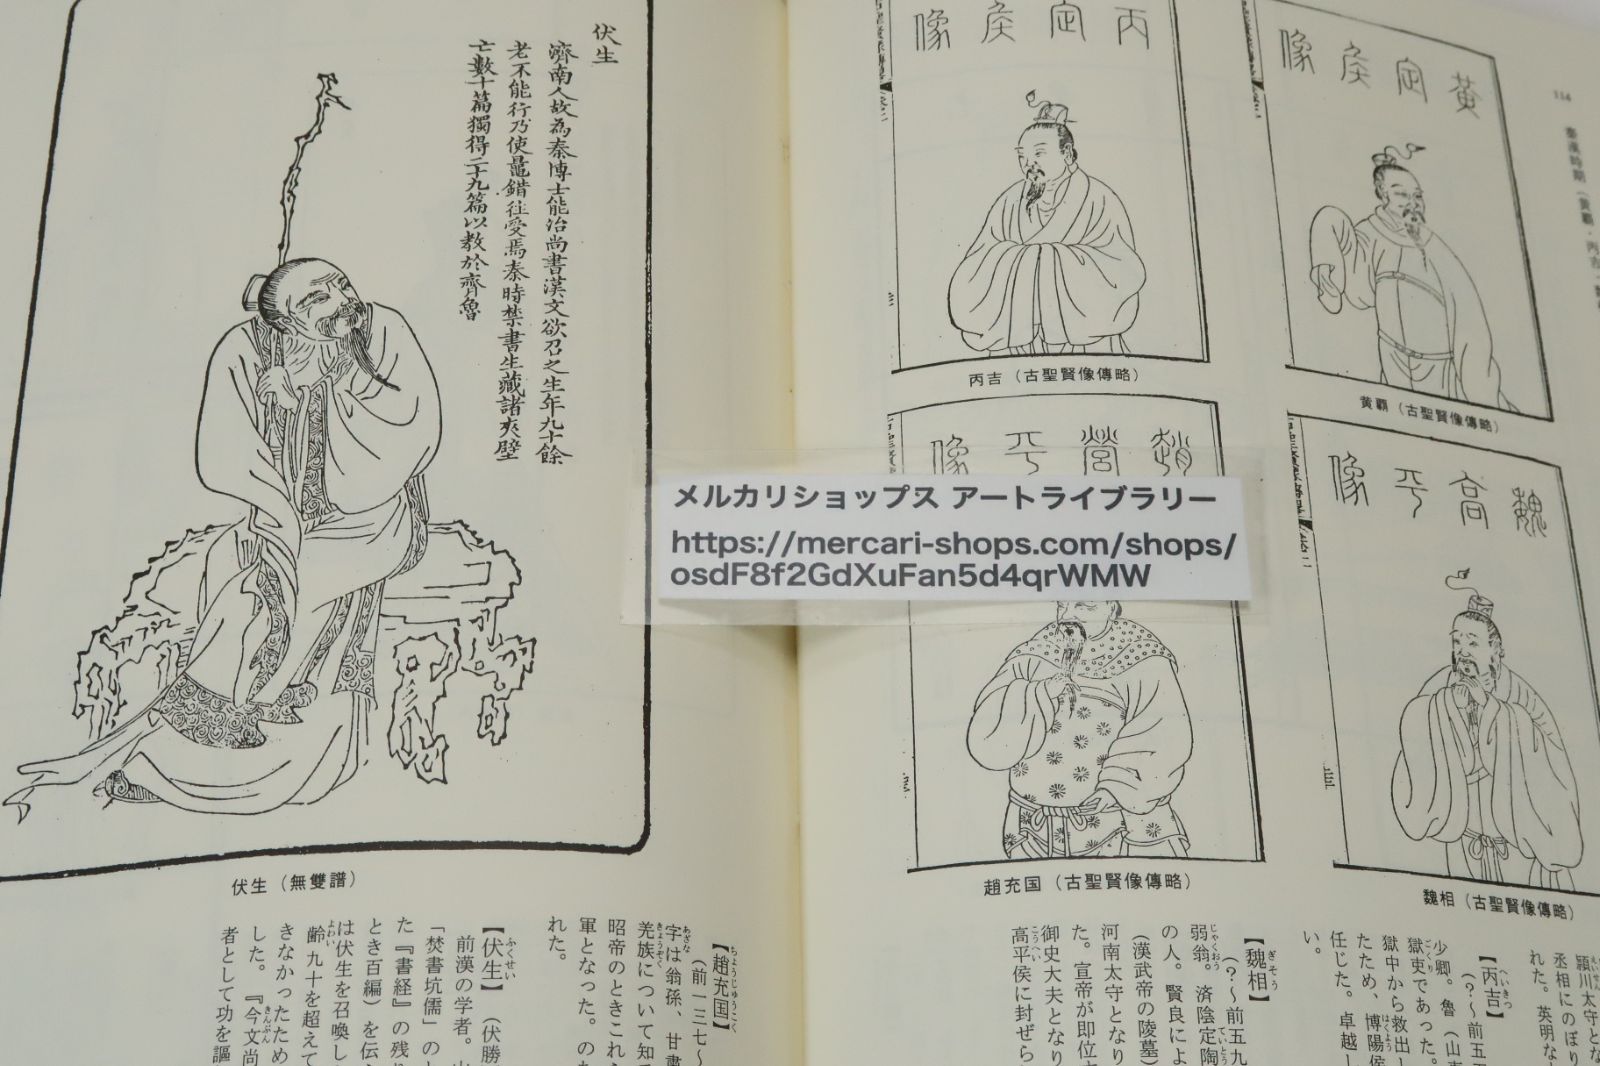 114
秦漢時期（黄覇・丙吉・魏
黄定侯像
黄覇（古聖賢像傳略）
丙定侯像
丙吉（古聖賢像傳略）
魏高平像
魏相（古聖賢像傳略）
趙營平像
趙充国（古聖賢像傳略）
メルカリショップス アートライブラリー
https://mercari-shops.com/shops/
osdF8f2GdXuFan5d4qrWMW
潁川太守とな
丞相にのぼり
れた。英明な
【丙吉】
（？〜前五五
少卿。魯（山東
獄吏であった。
獄中から救出し
たため、博陽侯
任じた。卓越し
い。
【魏相】
（？〜前五九
弱翁。済陰定陶
の人。賢良によ
（漢武帝の陵墓）
河南太守となり
た。宣帝が即位す
御史大夫となり
高平侯に封ぜら
伏生
濟南人故為秦博士能治尚書漢文欲召之生年九十餘
老不能行乃使鼂錯往受焉秦時禁書生藏諸夾壁
亡數十篇獨得二十九篇以教於齊魯
伏生（無雙譜）
【趙充国】
（前一三七〜
字は翁孫、甘粛
羌族について知
昭帝のときこれ
軍となった。の
れた。
【伏生】（伏勝
前漢の学者。山
「焚書坑儒」のと
た『書経』の残り
とき百編）を伝え
は伏生を召喚し
齢九十を超えて
きなかったため
した。『今文尚
者として功を謳